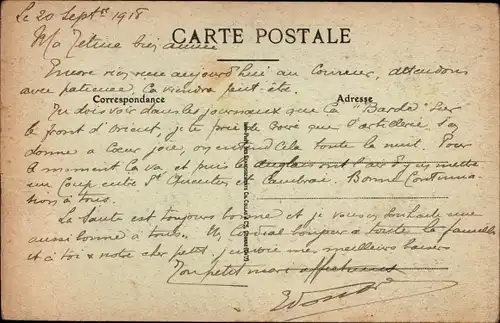 Le 20 Septbre 1918
CARTE POSTALE
Ma Petite bien aimée
Encore rien reçu aujourd'hui au courrier, attendons
avec patience, ça viendra peut-être.
Correspondance
Adresse
Tu dois voir dans les journaux que ça "Barde" sur
le front d'Orient, je te prie de croire que l'artillerie s'en
donne à cœur joie, on entend cela toute la nuit. Pour
le moment ça va et puis les anglais ont l'air d'y en mettre
un coup entre St Quentin et Cambrai. Bonne Continua-
tion à tous.
La Santé est toujours bonne et je vous souhaite une
aussi bonne à tous. Un Cordial bonjour à toute la famille
et à toi & notre cher petit j'envoie mes meilleurs baisers
Ton petit mari affectueux